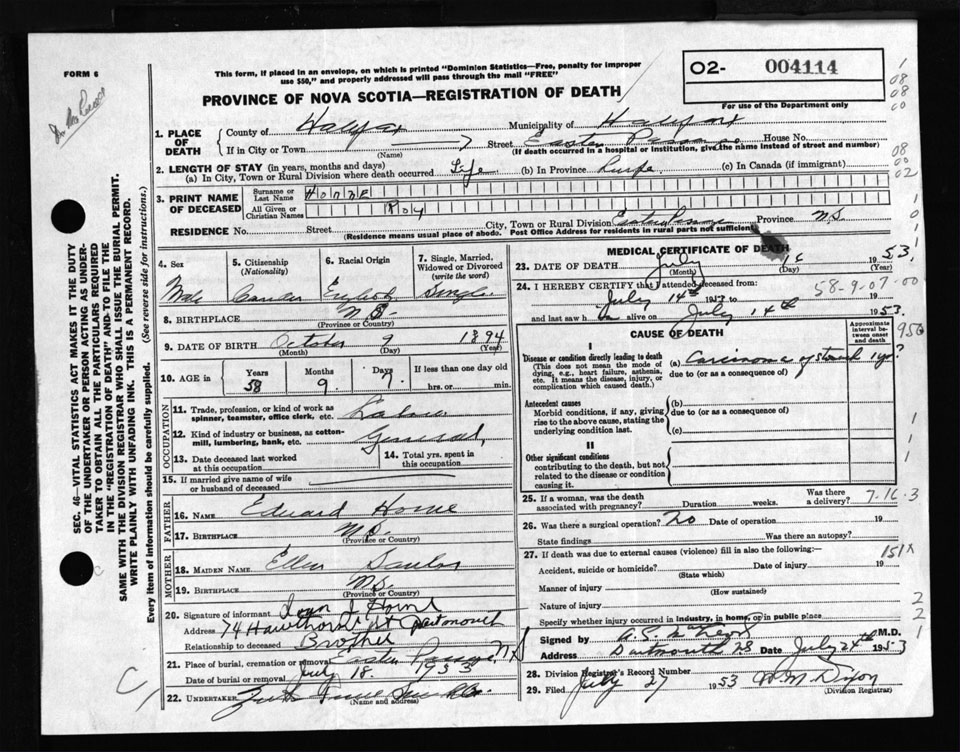 FORM 6
This form, if placed in an envelope, on which is printed "Dominion Statistics—Free, penalty for improper
use $50," and properly addressed will pass through the mail "FREE"
O2- 004114
For use of the Department only
PROVINCE OF NOVA SCOTIA—REGISTRATION OF DEATH
1. PLACE OF DEATH
County of Halifax Municipality of Halifax
If in City or Town (Name) Street Eastern Passage House No.
(If death occurred in a hospital or institution, give the name instead of street and number)
2. LENGTH OF STAY (in years, months and days)
(a) In City, Town or Rural Division where death occurred Life (b) In Province (c) In Canada (if immigrant)
3. PRINT NAME OF DECEASED
Surname or Last Name HORNE
All Given or Christian Names Roy
RESIDENCE No. Street City, Town or Rural Division Eastern Passage Province N.S.
(Residence means usual place of abode. Post Office Address for residents in rural parts not sufficient)
4. Sex Male
5. Citizenship (Nationality)
6. Racial Origin English
7. Single, Married, Widowed or Divorced (write the word) Single
8. BIRTHPLACE N.S. (Province or Country)
9. DATE OF BIRTH October 9 1894
(Month) (Day) (Year)
10. AGE in Years 58 Months 9 Days 7 If less than one day hrs. or min.
OCCUPATION
11. Trade, profession, or kind of work as spinner, teamster, office clerk, etc.
12. Kind of industry or business, as cotton-mill, lumbering, bank, etc. General
13. Date deceased last worked at this occupation
14. Total yrs. spent in this occupation
15. If married give name of wife or husband of deceased
FATHER
16. NAME Edward Horne
17. BIRTHPLACE N.S. (Province or Country)
MOTHER
18. MAIDEN NAME Ellen
19. BIRTHPLACE N.S. (Province or Country)
20. Signature of informant Horne
Address 74 Hawthorne St Dartmouth
Relationship to deceased Brother
21. Place of burial, cremation or removal Eastern Passage N.S
Date of burial or removal July 18. 1953
22. UNDERTAKER
(Name and address)
MEDICAL CERTIFICATE OF DEATH
23. DATE OF DEATH July 1953
(Month) (Day) (Year)
24. I HEREBY CERTIFY that I attended deceased from:
July 14th 1953 to
and last saw h alive on July 14th 1953
58-9-07-00
CAUSE OF DEATH
Approximate interval between onset and death
950
I
Disease or condition directly leading to death
(This does not mean the mode of dying, e.g., heart failure, asthenia, etc. It means the disease, injury, or complication which caused death.)
(a) Carcinoma of stomach 1 yr?
due to (or as a consequence of)
Antecedent causes
Morbid conditions, if any, giving rise to the above cause, stating the underlying condition last.
(b)
due to (or as a consequence of)
(c)
II
Other significant conditions
contributing to the death, but not related to the disease or condition causing it.
25. If a woman, was the death associated with pregnancy? Duration weeks. Was there a delivery?
7-16-3
26. Was there a surgical operation? No Date of operation 19
State findings Was there an autopsy?
27. If death was due to external causes (violence) fill in also the following:
151X
Accident, suicide or homicide? (State which) Date of injury 19
Manner of injury (How sustained)
Nature of injury
Specify whether injury occurred in industry, in home, or in public place
Signed by M.D.
Address Dartmouth NS Date July 24th 1953
28. Division Registrar's Record Number
29. Filed July 27 1953 W. M. Dixon
(Division Registrar)
SEC. 46—VITAL STATISTICS ACT MAKES IT THE DUTY
OF THE UNDERTAKER OR PERSON ACTING AS UNDER-
TAKER TO OBTAIN ALL THE PARTICULARS REQUIRED
IN THE "REGISTRATION OF DEATH" AND TO FILE THE
SAME WITH THE DIVISION REGISTRAR WHO SHALL ISSUE THE BURIAL PERMIT.
WRITE PLAINLY WITH UNFADING INK. THIS IS A PERMANENT RECORD.
Every item of information should be carefully supplied. (See reverse side for instructions.)